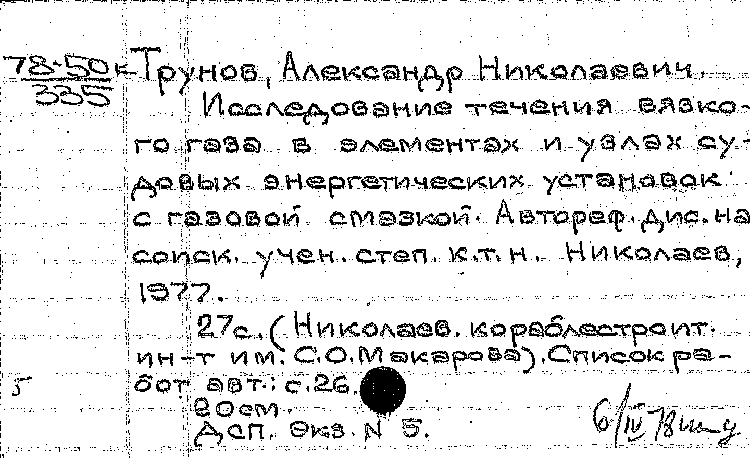 78-50к Трунов, Александр Николаевич.
335
Исследование течения вязко-
го газа в элементах и узлах су-
довых энергетических установок
с газовой смазкой. Автореф. дис. на
соиск. учен. степ. к.т.н. Николаев,
1977.
27с. (Николаев. кораблестроит.
ин-т им. С.О.Макарова). Список ра-
5 бот авт.: с.26.
20см.
ДСП. Экз. N 5.
6/IV 78